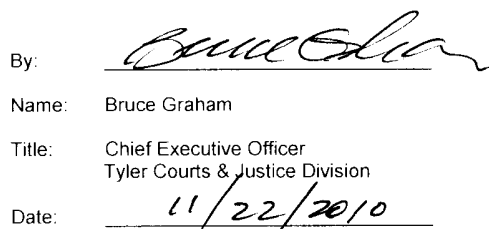 By: Bruce Graham
Name: Bruce Graham
Title: Chief Executive Officer
Tyler Courts & Justice Division
Date: 11/22/2010